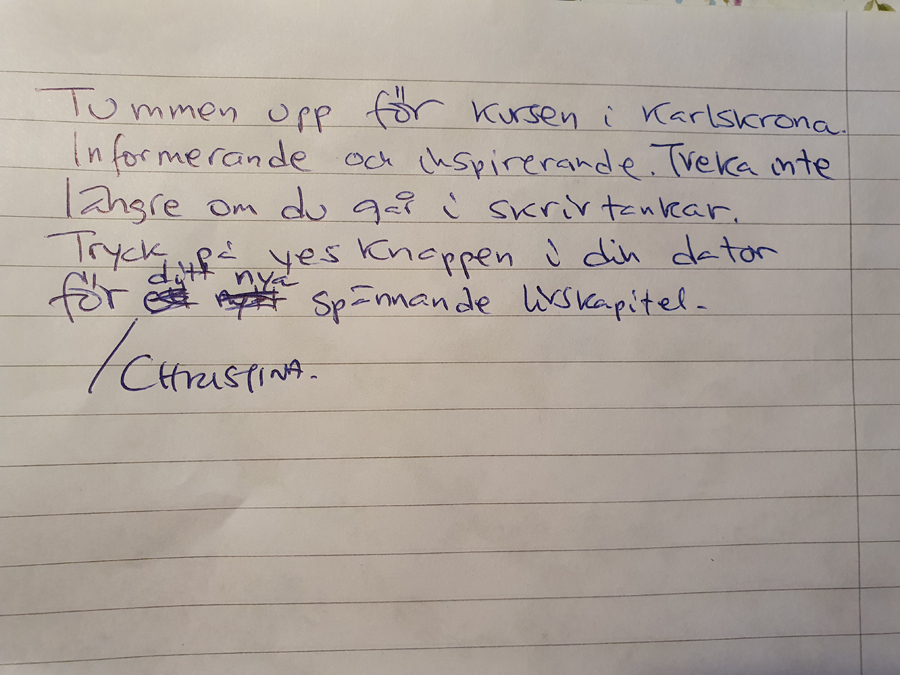 Tummen upp för kursen i Karlskrona.
Informerande och inspirerande. Tveka inte
längre om du går i skrivtankar.
Tryck på yes knappen i din dator
för ditt nya spännande livskapitel.
/CHRISTINA.